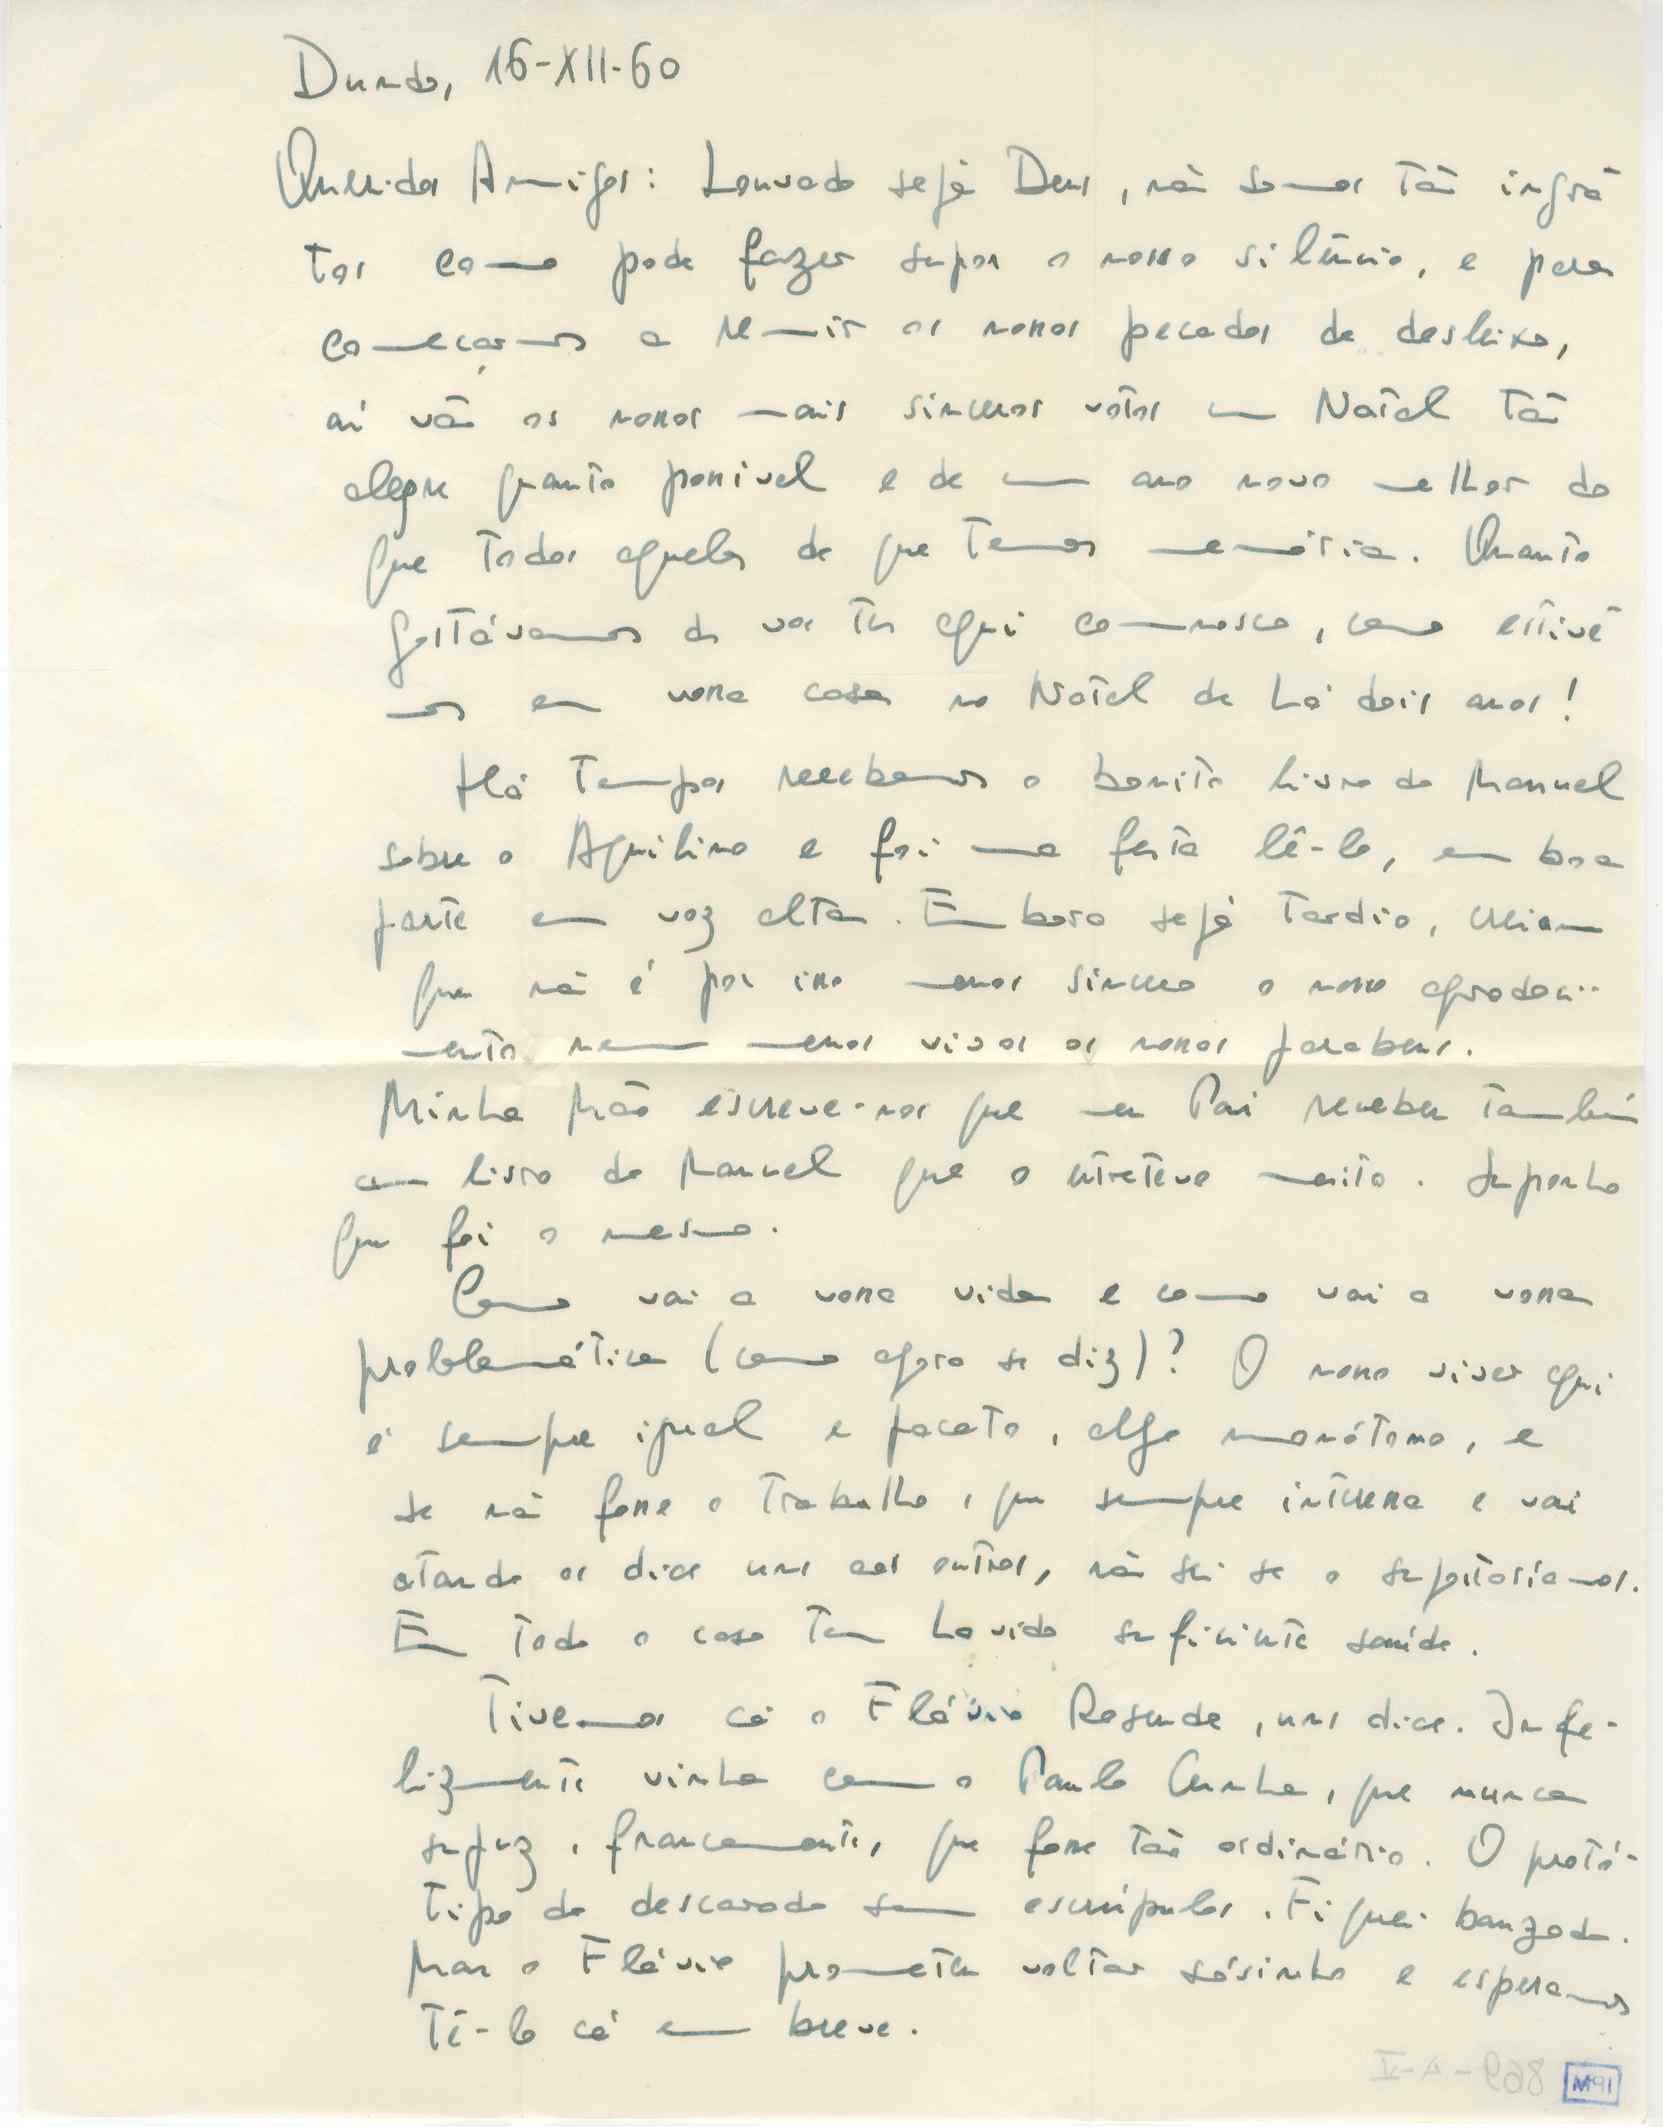 Dundo, 16-XII-60
Queridos Amigos: Louvado seja Deus, não somos tão ingra
tos como pode fazer supor o nosso silêncio, e para
começarmos a remir os nossos pecados de desleixo,
aí vão os nossos mais sinceros votos um Natal tão
alegre quanto possivel e de um ano novo melhor do
que todos aqueles de que temos memória. Quanto
gostávamos de vos ter aqui connosco, como estive
mos em vossa casa no Natal de há dois anos!
Há tempos recebemos o bonito livro do Manuel
sobre o Aquilino e foi uma festa lê-lo, em boa
parte em voz alta. Embora seja tardio, creiam
que não é por isso menos sincero o nosso agradeci-
mento nem menos vivos os nossos parabens.
Minha Mãe escreve-nos que meu Pai recebeu também
um livro do Manuel que o entreteve muito. Suponho
que foi o mesmo.
Como vai a vossa vida e como vai a vossa
problemática (como agora se diz)? O nosso viver aqui
é sempre igual e pacato, algo monótono, e
se não fosse o trabalho, que sempre interessa e vai
atando os dias uns aos outros, não sei se o suportariamos.
Em todo o caso tem havido suficiente saúde.
Tivemos cá o Flávio Resende, uns dias. Infe-
lizmente vinha com o Paulo Cunha, que nunca
supuz, francamente, que fosse tão ordinário. O protó-
tipo do descarado sem escrúpulos. Fiquei banzado.
Mas o Flávio prometeu voltar sósinho e esperamos
tê-lo cá em breve.
869-A-II
M91